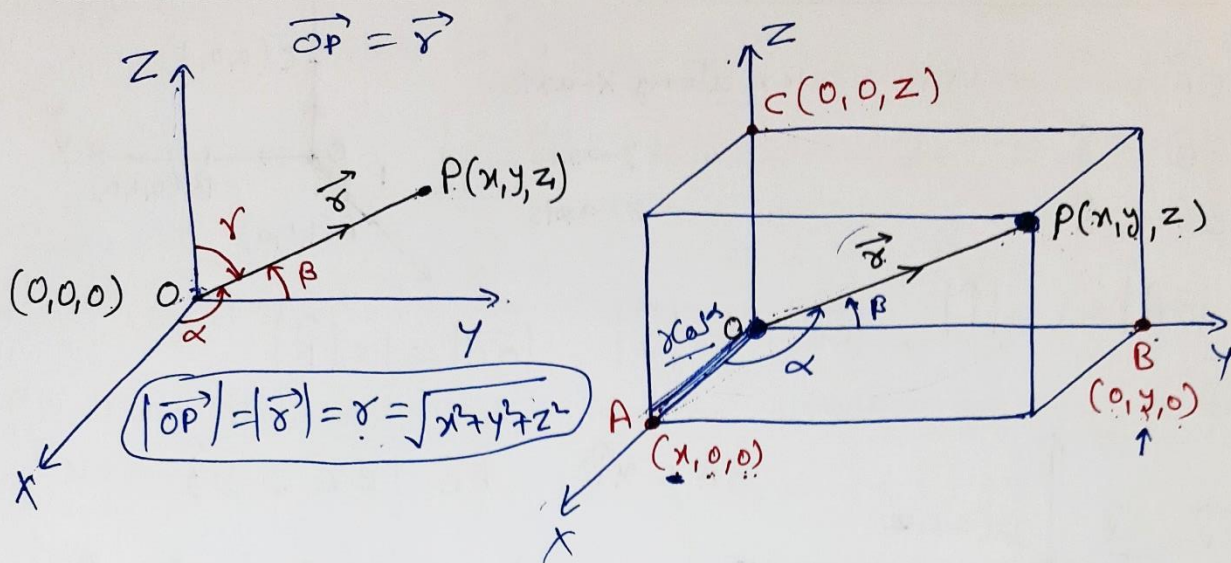 $\overrightarrow{OP} = \vec{r}$
Z
$\vec{r}$
P(x,y,z)
γ
β
(0,0,0) O
α
Y
$|\overrightarrow{OP}| = |\vec{r}| = r = \sqrt{x^2+y^2+z^2}$
X
Z
C (0,0,Z)
P(x,y,z)
$\vec{r}$
β
rcosα
O
α
Y
B
(0,y,0)
A
(x,0,0)
X